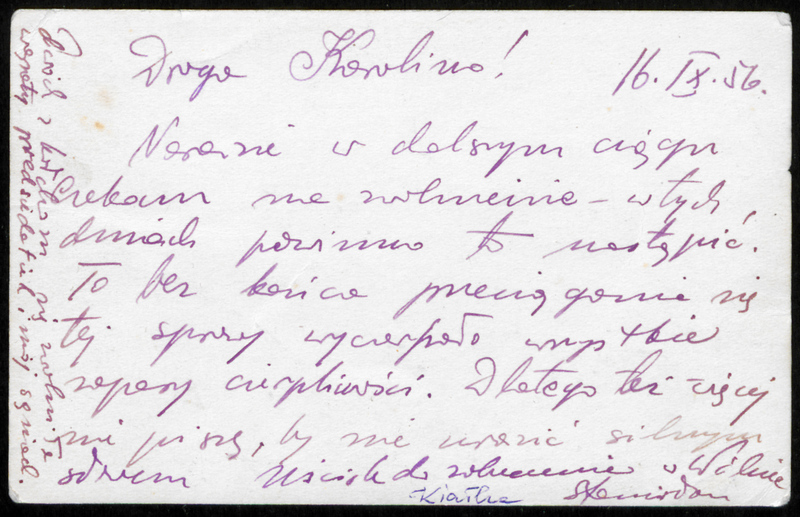 Droga Karolino!
16.IX.56.
Narazie w dalszym ciągu
czekam na zwolnienie – w tych
dniach powinno to nastąpić.
To bez końca przeciąganie się
tej sprawy wyczerpało wszystkie
zapasy cierpliwości. Dlatego też więcej
nie piszę, by nie urazić silnym
słowem Uścisk do zobaczenia w Wilnie
Stanisław
się zwolnił
wczoraj przedsiedatiel i mój sąsiad.